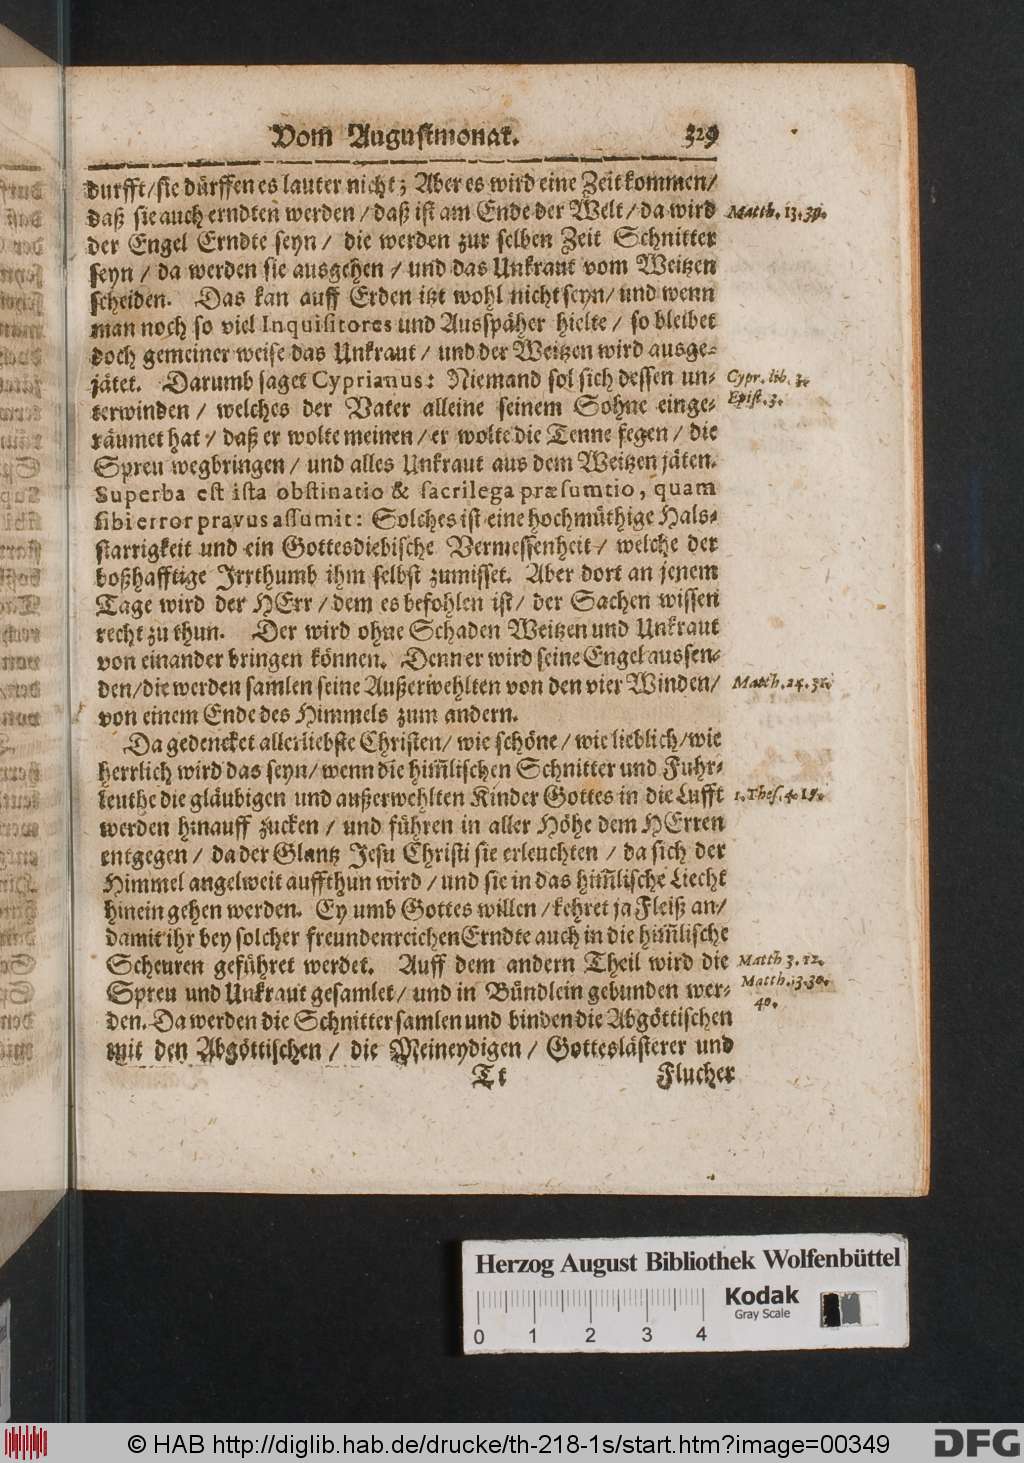 Vom̃ Augustmonat. 329
durfft/sie dürffen es lauter nicht; Aber es wird eine Zeit kommen/
daß sie auch erndten werden / daß ist am Ende der Welt / da wird
Matth. 13. 39.
der Engel Erndte seyn / die werden zur selben Zeit Schnitter
seyn / da werden sie ausgehen / und das Unkraut vom Weitzen
scheiden. Das kan auff Erden itzt wohl nicht seyn/ und wenn
man noch so viel Inquisitores und Ausspäher hielte / so bleibet
doch gemeiner weise das Unkraut / und der Weitzen wird ausge-
jätet. Darumb saget Cyprianus: Niemand sol sich dessen un-
Cypr. lib. 3.
Epist. 3.
terwinden / welches der Vater alleine seinem Sohne einge-
räumet hat / daß er wolte meinen / er wolte die Tenne fegen / die
Spreu wegbringen / und alles Unkraut aus dem Weitzen jäten.
Superba est ista obstinatio & sacrilega præsumtio, quam
sibi error pravus assumit: Solches ist eine hochmüthige Hals-
starrigkeit und ein Gottesdiebische Vermessenheit / welche der
boßhafftige Irrthumb ihm selbst zumisset. Aber dort an jenem
Tage wird der HErr / dem es befohlen ist / der Sachen wissen
recht zu thun. Der wird ohne Schaden Weitzen und Unkraut
von einander bringen können. Denn er wird seine Engel aussen-
den/die werden samlen seine Außerwehlten von den vier Winden/
Matth. 24. 31.
von einem Ende des Himmels zum andern.
Da gedencket allerliebste Christen/ wie schöne / wie lieblich/wie
herrlich wird das seyn/ wenn die him̃lischen Schnitter und Fuhr-
leuthe die gläubigen und außerwehlten Kinder Gottes in die Lufft
1. Thes. 4. 17.
werden hinauff zucken / und führen in aller Höhe dem HErren
entgegen / da der Glantz Jesu Christi sie erleuchten / da sich der
Himmel angelweit auffthun wird / und sie in das him̃lische Liecht
hinein gehen werden. Ey umb Gottes willen / kehret ja Fleiß an/
damit ihr bey solcher freundenreichen Erndte auch in die him̃lische
Scheuren geführet werdet. Auff dem andern Theil wird die
Matth 3. 12.
Spreu und Unkraut gesamlet/ und in Bündlein gebunden wer-
Matth. 13. 30.
40.
den. Da werden die Schnitter samlen und binden die Abgöttischen
mit den Abgöttischen / die Meineydigen / Gotteslästerer und
Tt Flucher
Herzog August Bibliothek Wolfenbüttel
Kodak
Gray Scale
0 1 2 3 4
© HAB http://diglib.hab.de/drucke/th-218-1s/start.htm?image=00349
DFG